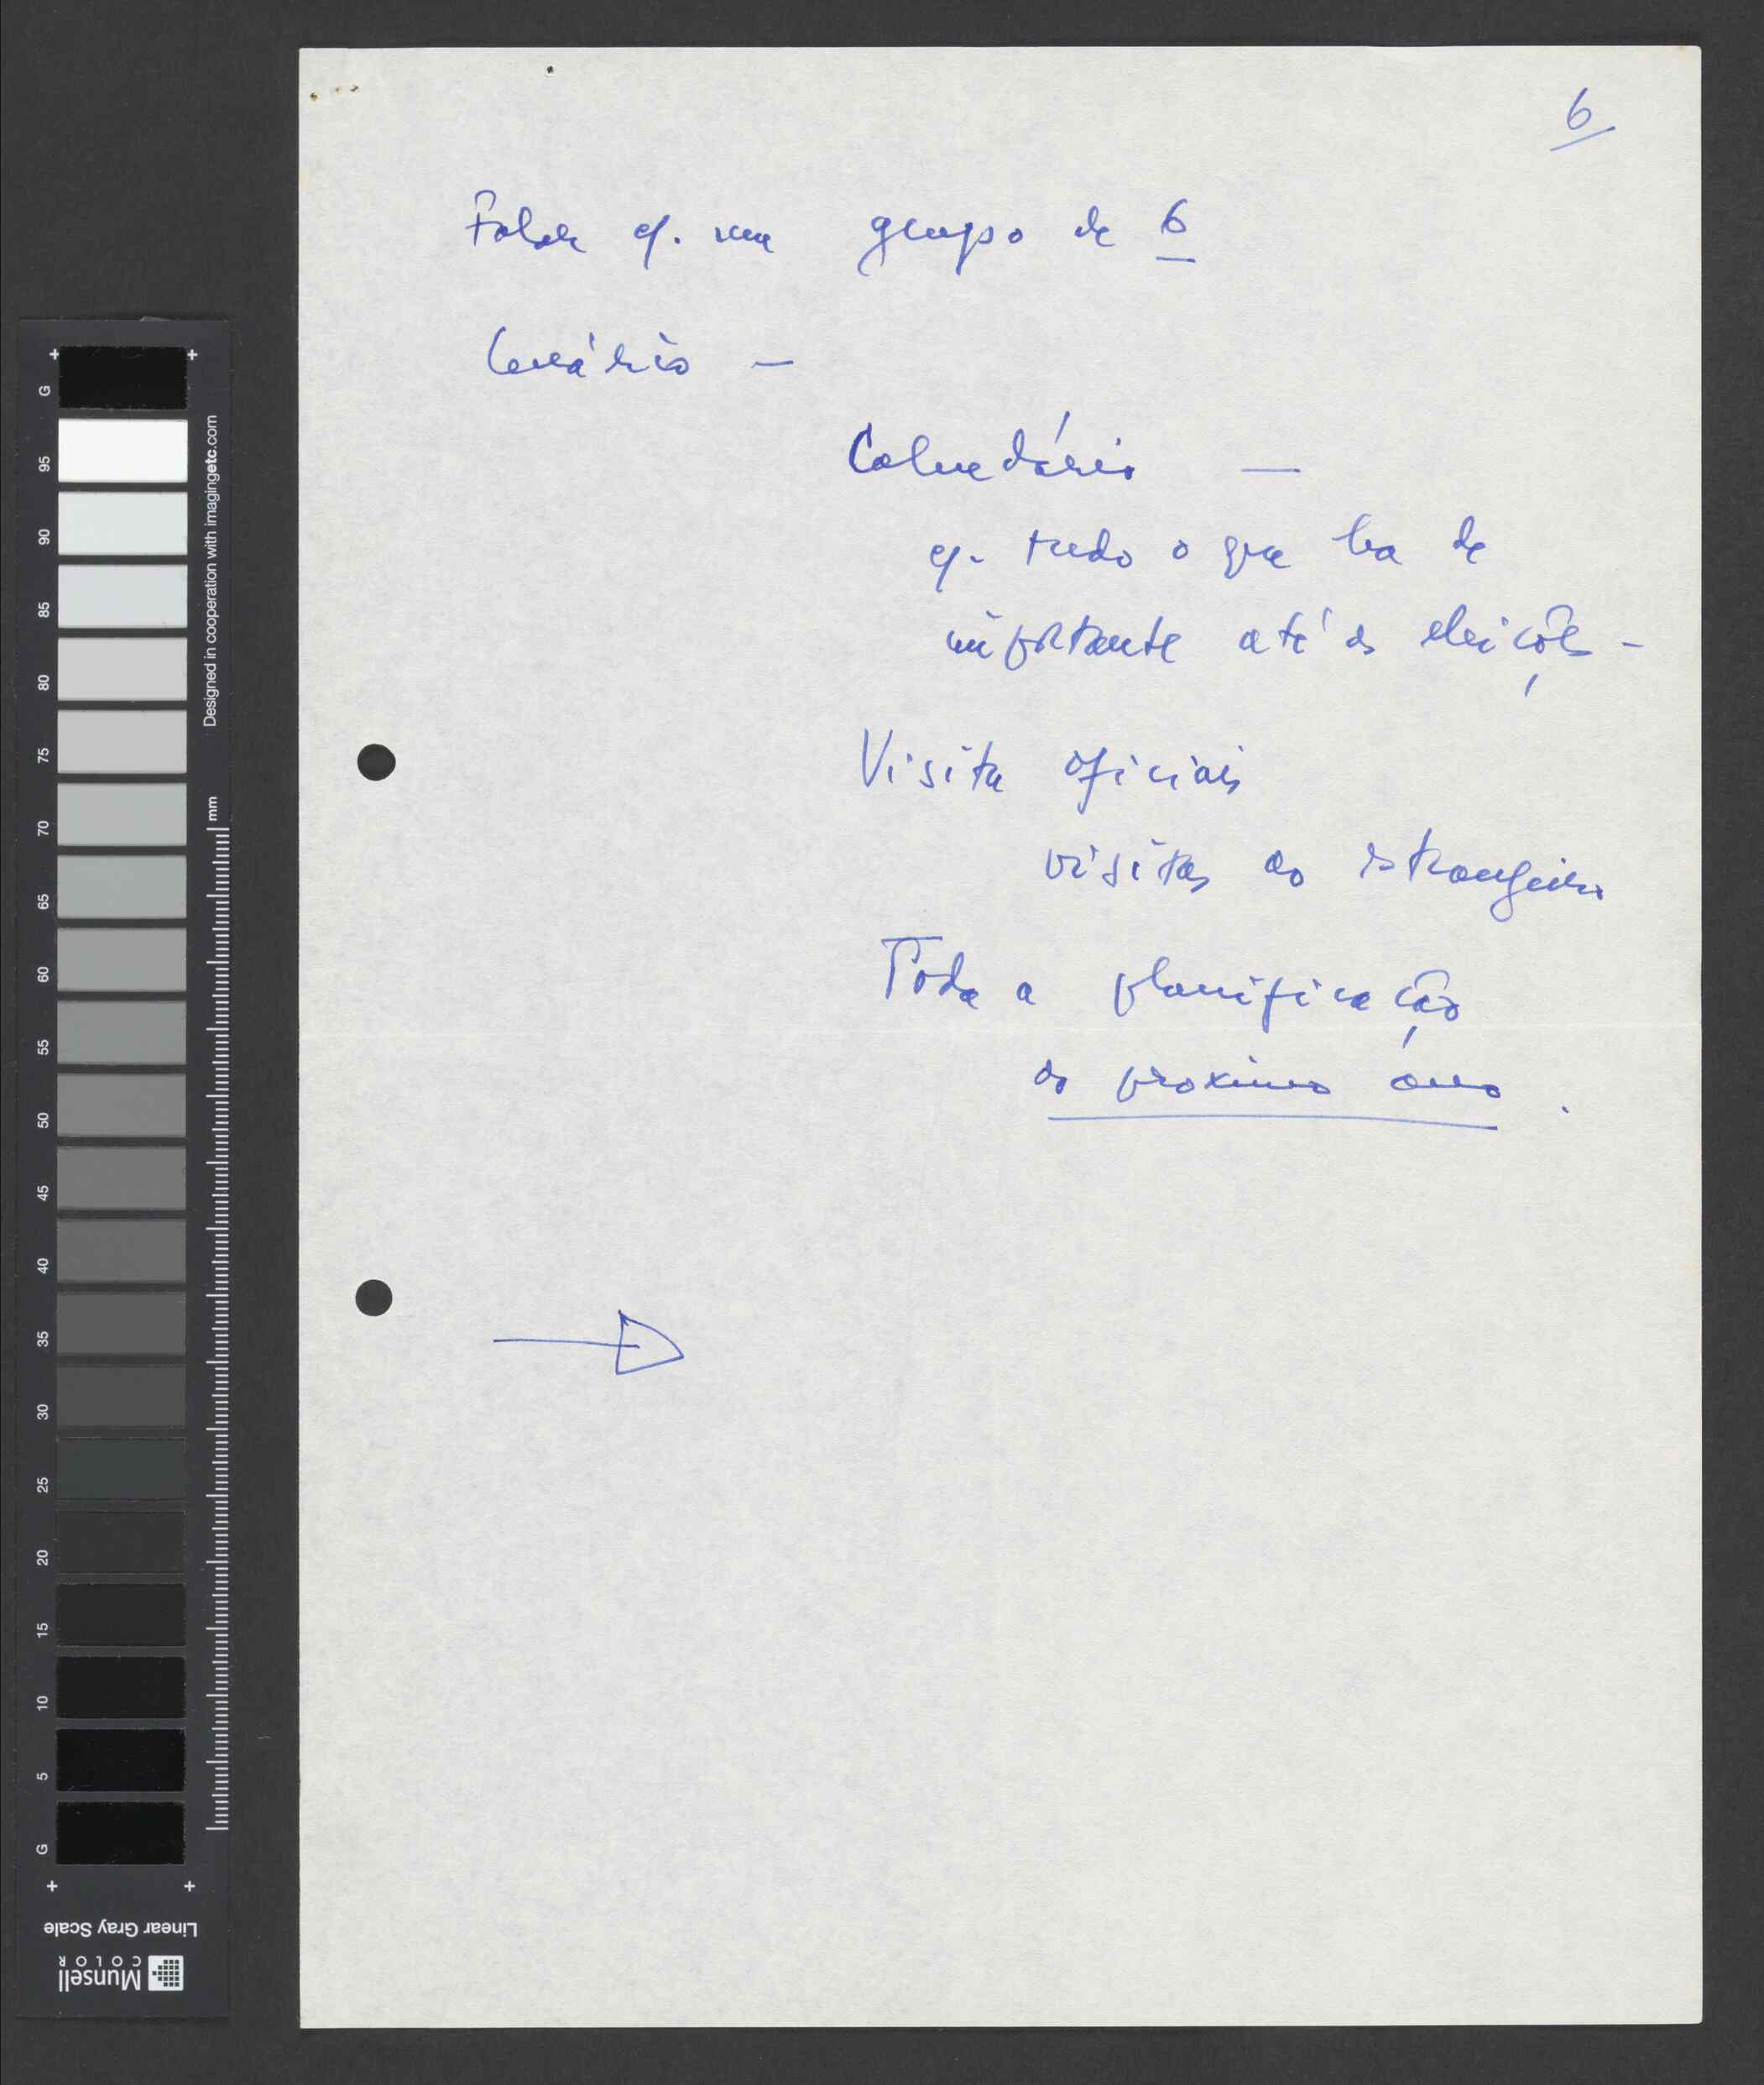 6
Falar c/. um grupo de 6
Cenário —
Calendário —
c/. tudo o que ha de
importante até às eleições -
Visita oficiais
visitas ao estrangeiro
Toda a planificação
do proximo ano .
G
95
90
85
80
75
70
65
60
55
50
45
40
35
30
25
20
15
10
5
G
Designed in cooperation with imagingetc.com
mm
Linear Gray Scale
Munsell
COLOR